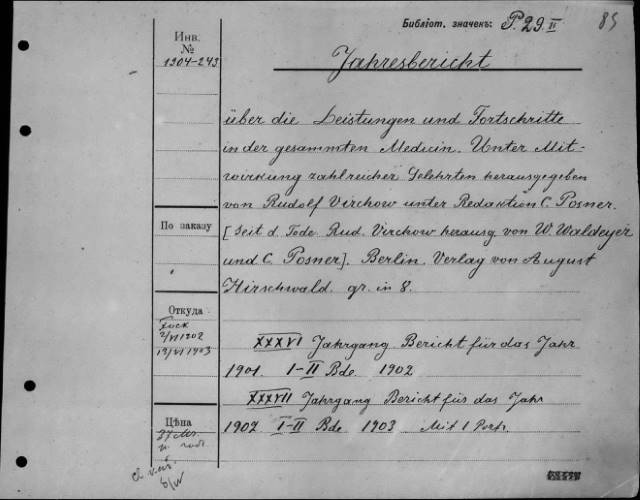 Библіот. значекъ: P.29.II 85
Инв.
№
1904-243
Jahresbericht
über die Leistungen und Fortschritte
in der gesammten Medicin. Unter Mit-
wirkung zahlreicher Gelehrten herausgegeben
von Rudolf Virchow unter Redaktion C. Posner.
[Seit d. Tode Rud. Virchow herausg. von W. Waldeyer
und C. Posner]. Berlin. Verlag von August
Hirschwald. gr. in 8.
По заказу
Откуда
2/VI 1902
19/VI 1903
XXXVI Jahrgang Bericht für das Jahr
1901. I-II Bde. 1902
XXXVII Jahrgang Bericht für das Jahr
1902 I-II Bde 1903 Mit 1 Portr.
Цѣна